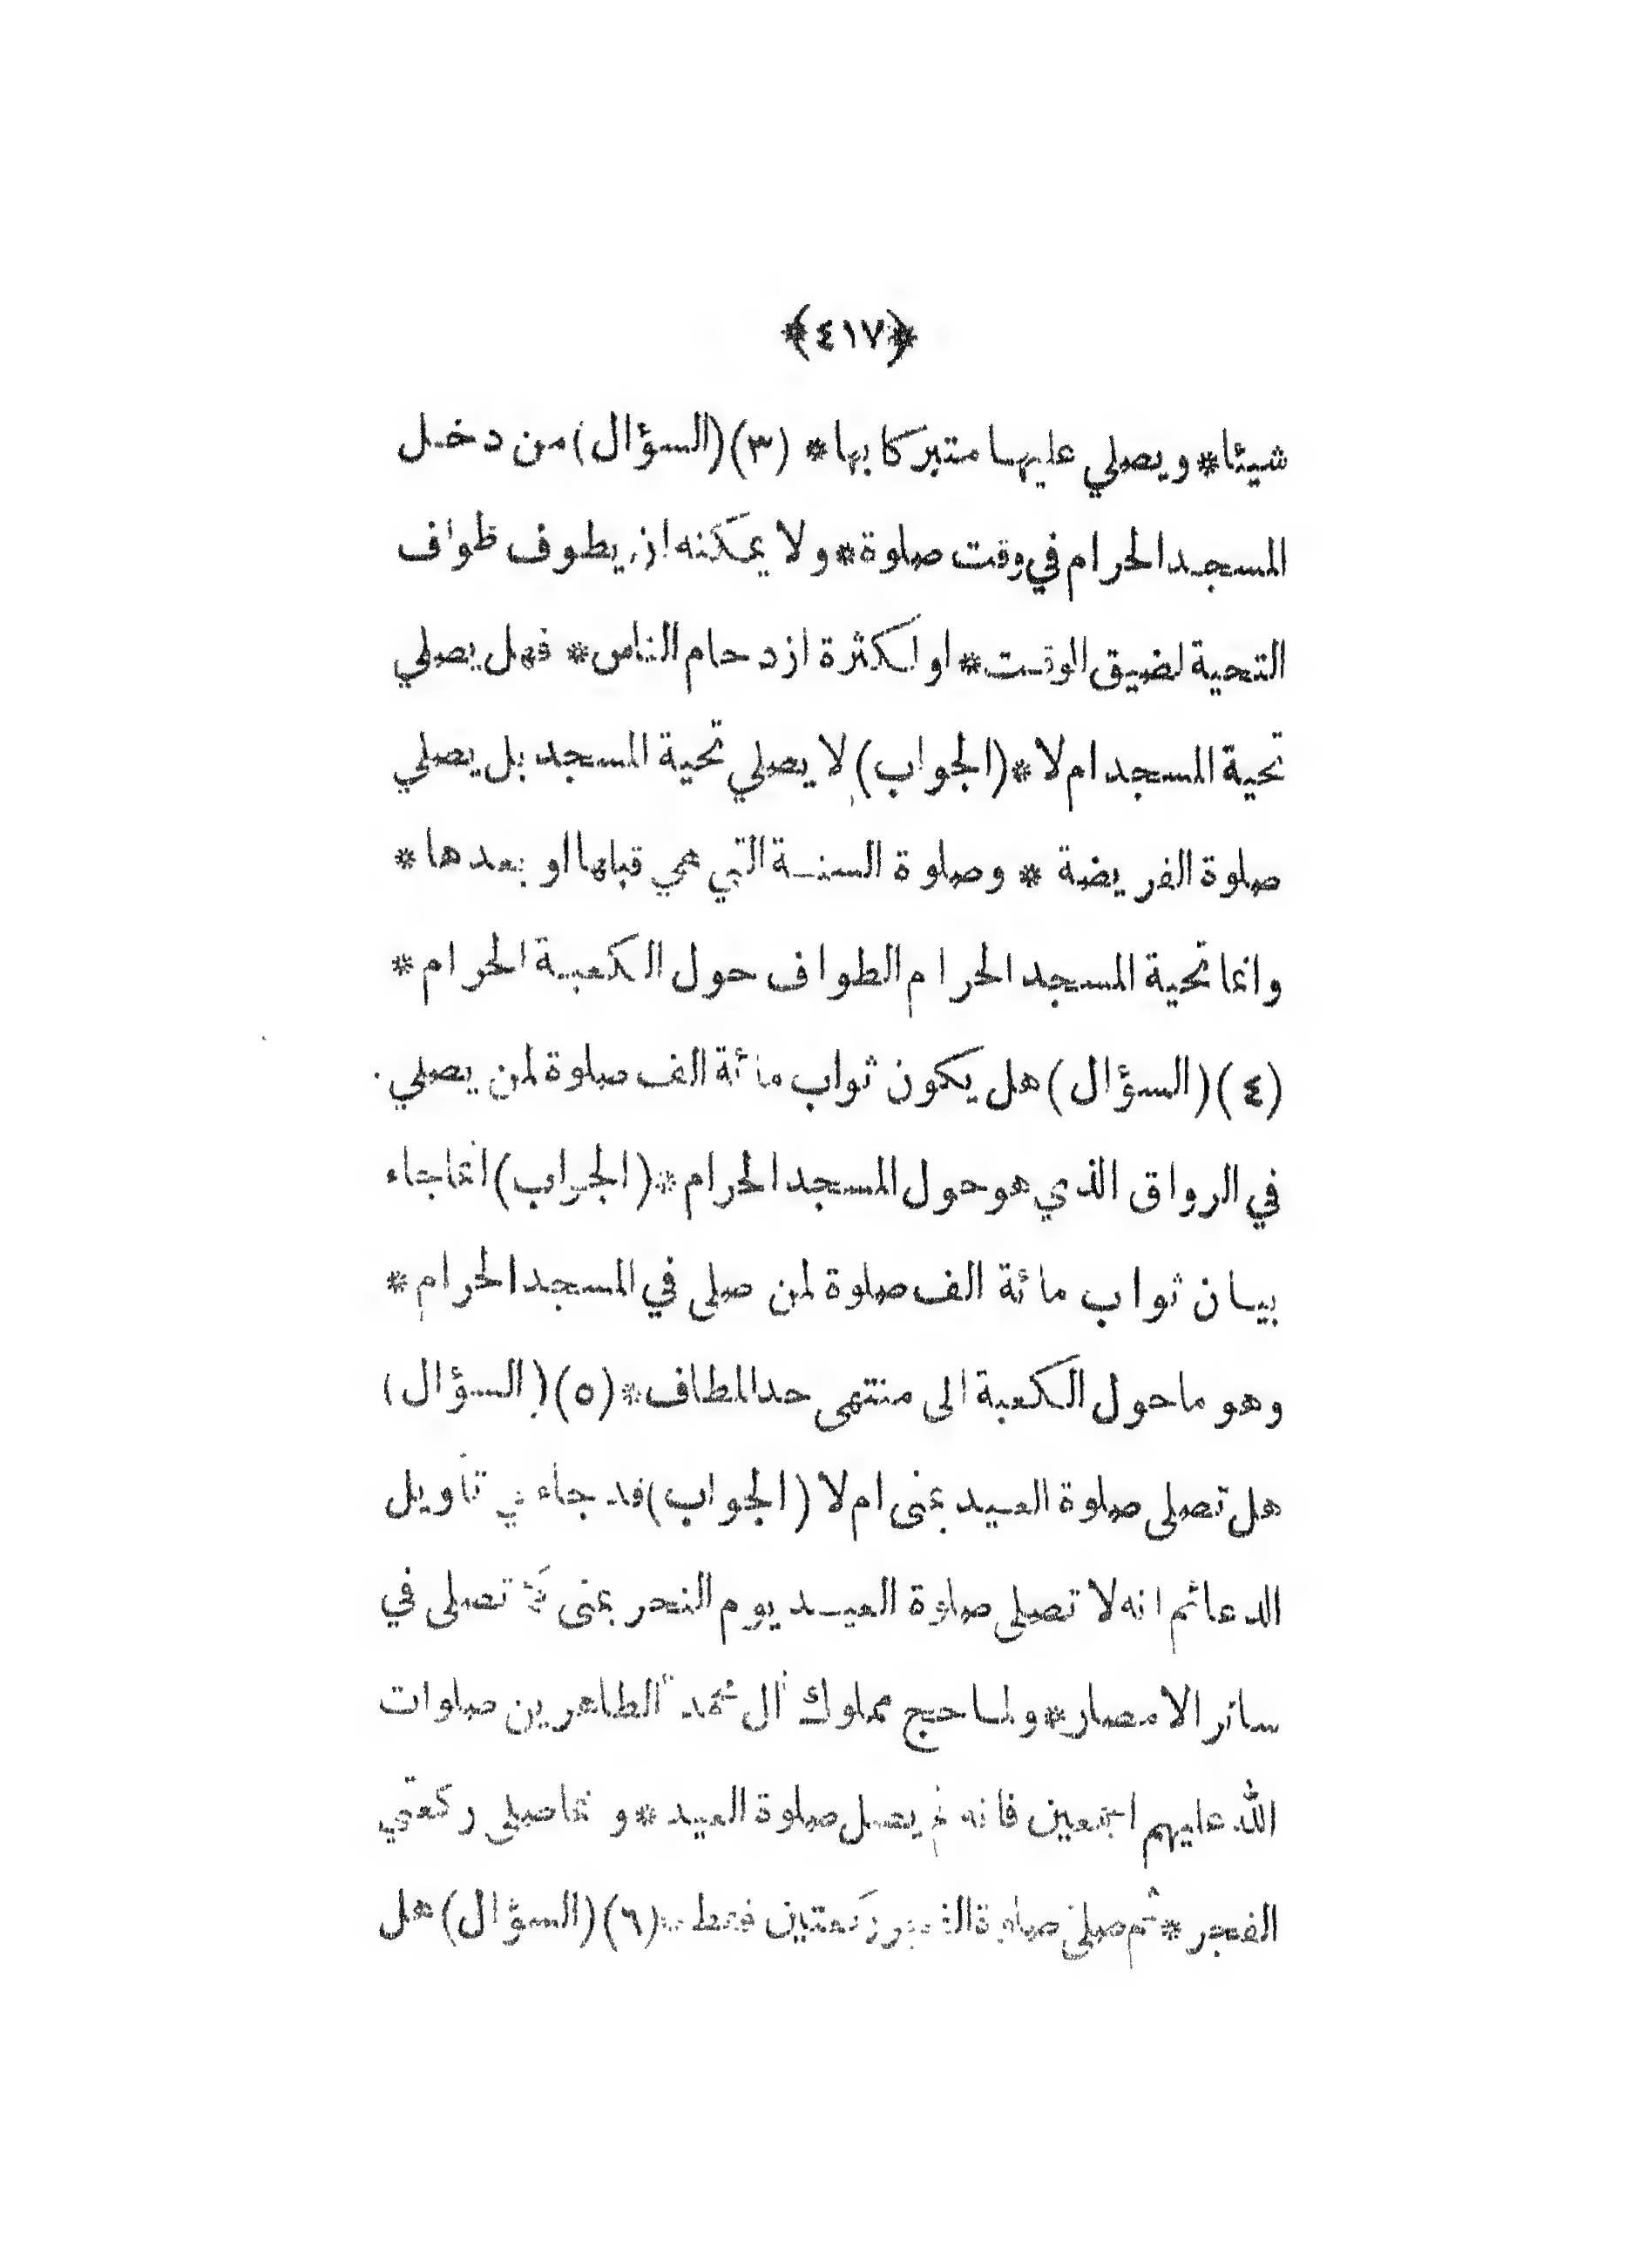 ﴿٤١٧﴾
شيئا* ويصلي عليها متبركا بها* (٣) (السؤال) من دخل
المسجد الحرام في وقت صلوة* ولا يمكنه ان يطوف طواف
التحية لضيق الوقت* او لكثرة ازدحام الناس* فهل يصلي
تحية المسجد ام لا* (الجواب) لا يصلي تحية المسجد بل يصلي
صلوة الفريضة * وصلوة السنة التي هي قبلها او بعدها*
وانما تحية المسجد الحرام الطواف حول الكعبة الحرام*
(٤) (السؤال) هل يكون ثواب مائة الف صلوة لمن يصلي
في الرواق الذي هو حول المسجد الحرام* (الجواب) انما جاء
بيان ثواب مائة الف صلوة لمن صلى في المسجد الحرام*
وهو ما حول الكعبة الى منتهى حد المطاف* (٥) (السؤال)
هل تصلى صلوة العيد بمنى ام لا (الجواب) قد جاء في تأويل
الدعائم انه لا تصلى صلوة العيد يوم النحر بمنى كما تصلى في
سائر الامصار* ولما حج مملوك آل محمد الطاهرين صلوات
الله عليهم اجمعين فانه لم يصل صلوة العيد* و انما صلى ركعتي
الفجر* ثم صلى صلوة الفجر ركعتين فقط* (٦) (السؤال) هل